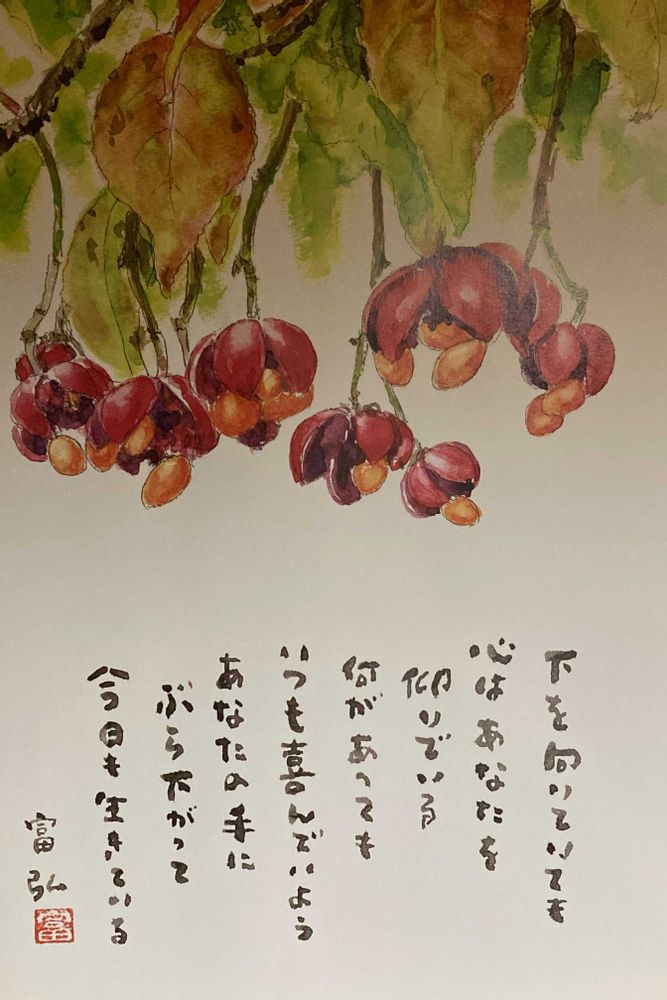 下を向いていても
心はあなたを
仰いでいる
何があっても
いつも喜んでいよう
あなたの手に
ぶら下がって
今日も生きている
富弘
富